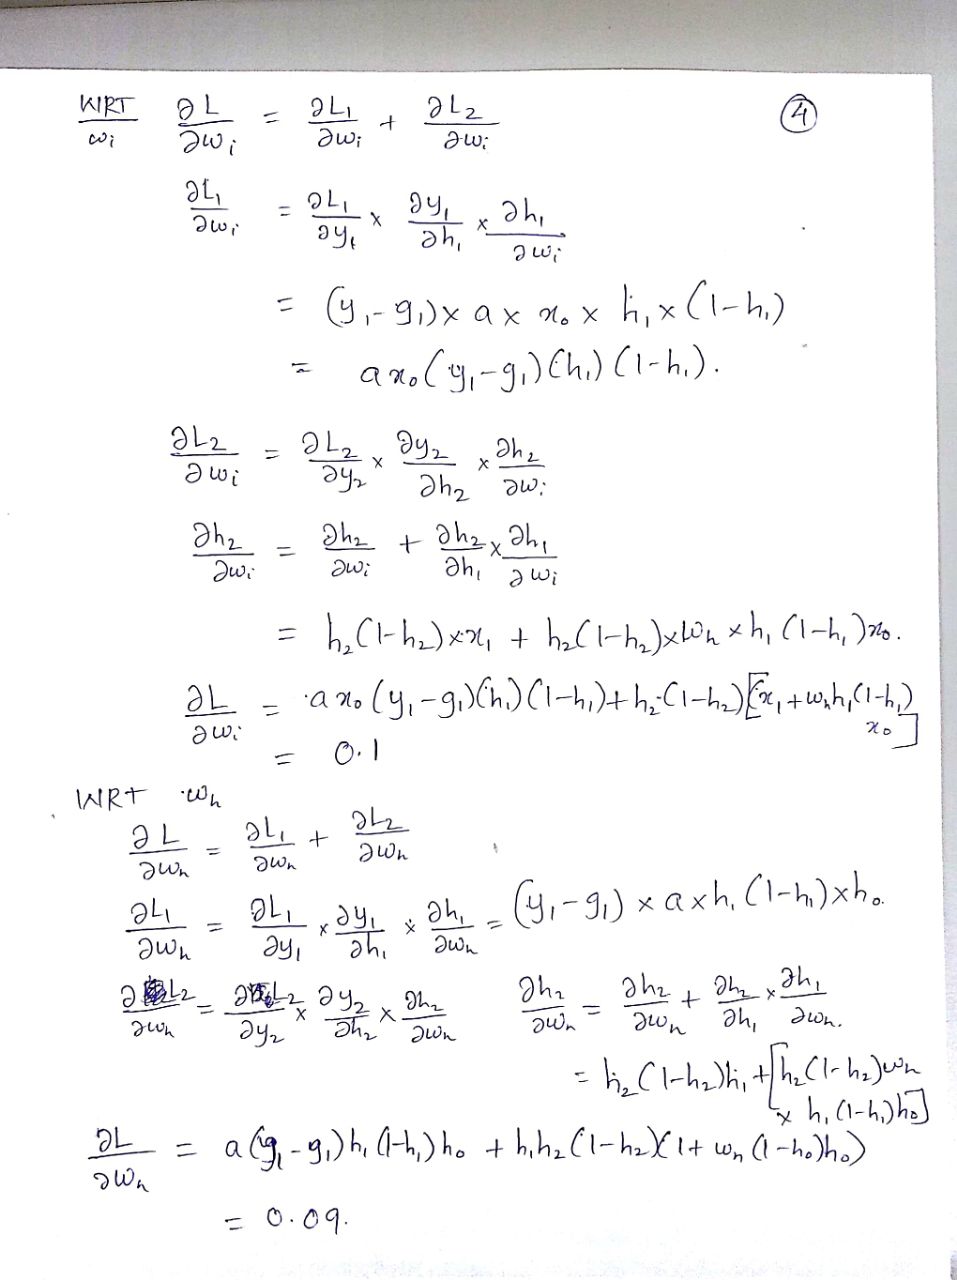 ④
WRT/wi ∂L/∂wi = ∂L1/∂wi + ∂L2/∂wi
∂L1/∂wi = ∂L1/∂y1 × ∂y1/∂h1 × ∂h1/∂wi
= (y1-g1) × a × x0 × h1 × (1-h1)
= a x0 (y1-g1) (h1) (1-h1).
∂L2/∂wi = ∂L2/∂y2 × ∂y2/∂h2 × ∂h2/∂wi
∂h2/∂wi = ∂h2/∂wi + ∂h2/∂h1 × ∂h1/∂wi
= h2(1-h2) × x1 + h2(1-h2) × wh × h1 (1-h1) x0.
∂L/∂wi = a x0 (y1-g1)(h1)(1-h1) + h2(1-h2)[x1 + wh h1(1-h1)
x0]
= 0.1
WRT wh
∂L/∂wh = ∂L1/∂wh + ∂L2/∂wh
∂L1/∂wh = ∂L1/∂y1 × ∂y1/∂h1 × ∂h1/∂wh = (y1-g1) × a × h1 (1-h1) × h0.
∂L2/∂wh = ∂L2/∂y2 × ∂y2/∂h2 × ∂h2/∂wh ∂h2/∂wh = ∂h2/∂wh + ∂h2/∂h1 × ∂h1/∂wh.
= h2(1-h2)h1 + [h2(1-h2)wh
× h1(1-h1)h0]
∂L/∂wh = a(y1-g1)h1(1-h1)h0 + h1h2(1-h2)(1+wh(1-h0)h0)
= 0.09.